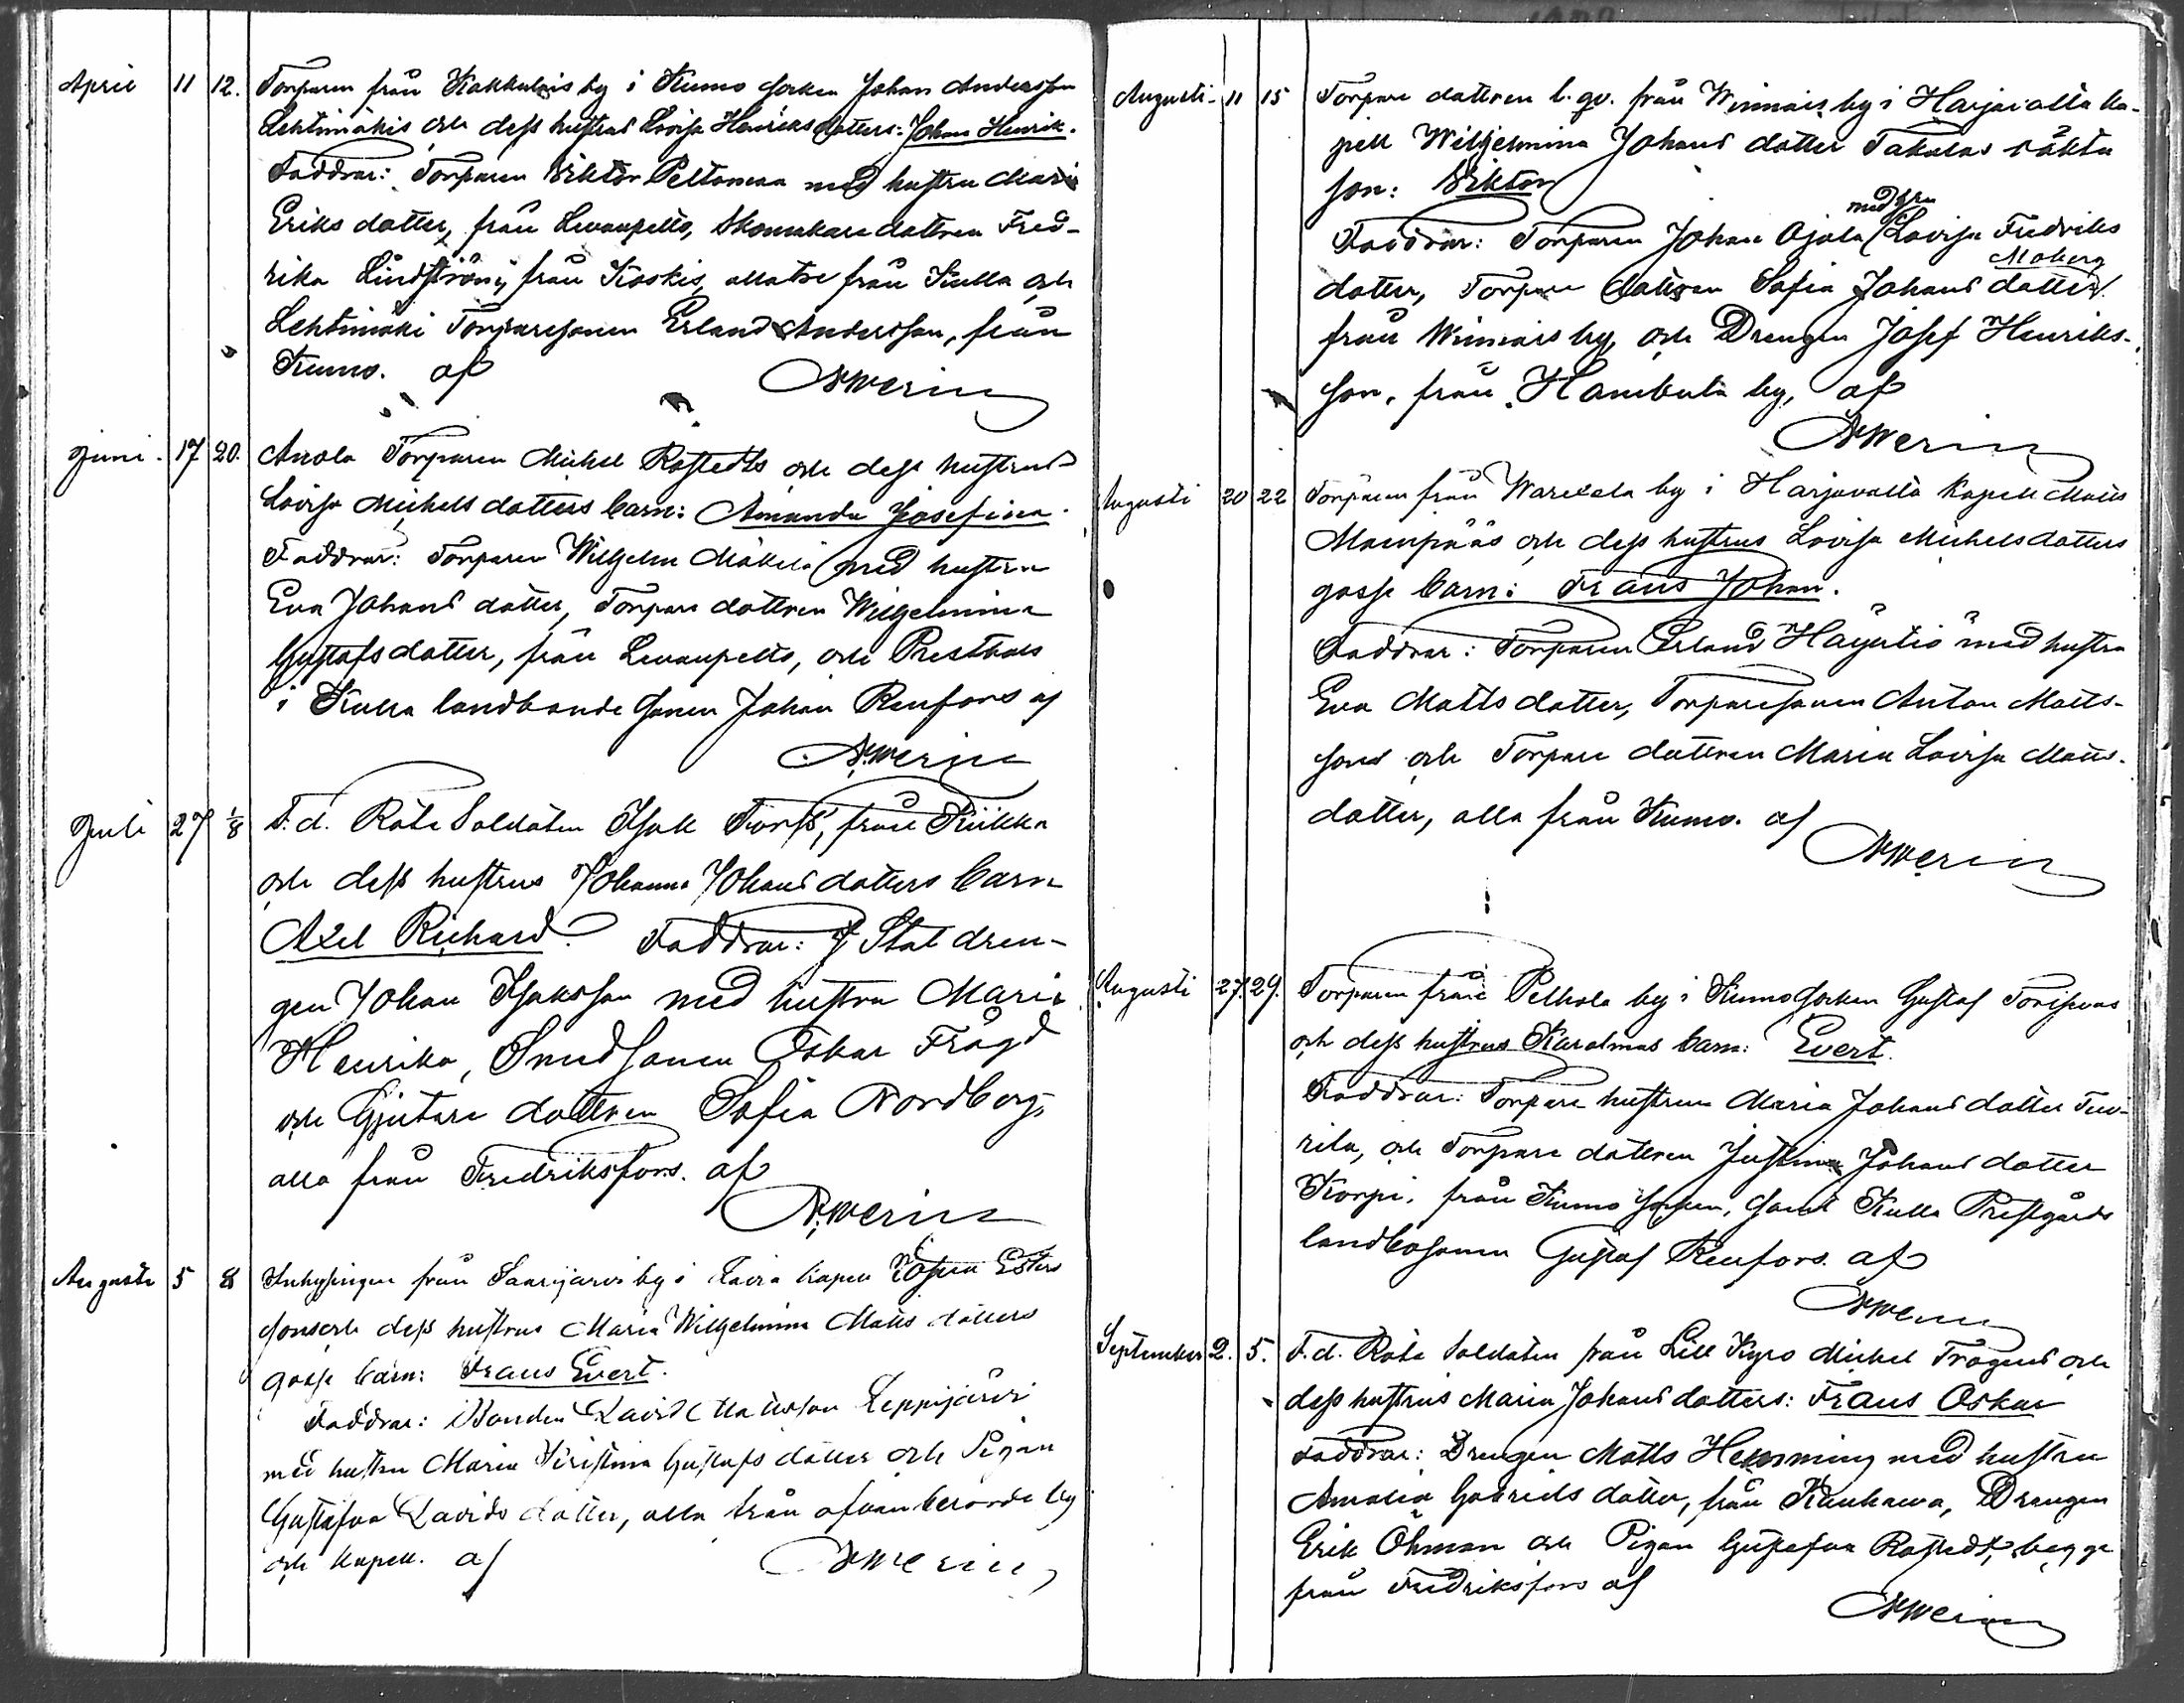 April 11 12. Torparen från Kakkulais by i Kumo socken Johan Andersson
Lehtimäkis och dess hustrus Lovisa Henriks dotters: Johan Henrik.
Faddrar: Torparen Viktor Peltomaa med hustru Maria
Eriks dotter, från Levanpelto, Skomakare dottren Fred-
rika Lindström, från Koskis, alla tre från Kulla och
Lehtimäki Torparesonen Erland Andersson, från
Kumo. af
Juni. 17 20. Anola Torparen Mickel Rostedts och dess hustrus
Lovisa Michels dotters barn: Amanda Josefina.
Faddrar: Torparen Wilhelm Mäkelä med hustru
Eva Johans dotter, Torpare dottren Wilhelmina
Gustafs dotter, från Levanpelto, och Prestbols
i Kulla landbonde sonen Johan Renfors af
Juli 27 1/8 F.d. Rote Soldaten Isak Torfs, från Kiikka
och dess hustrus Johanna Johans dotters barn
Axel Richard. Faddrar: Stal dren-
gen Johan Isaksson med hustru Maria
Henrika, Smed sonen Oskar Frögd
och Gjutare dottren Sofia Nordberg,
alla från Fredriksfors. af
Augusti 5 8 Inhysingen från Saarijärvi by i Lavia kapell Esters
sons och dess hustrus Maria Wilhelmina Matts dotters
gosse barn: Frans Evert.
Faddrar: Bonden David Mattsson Leppijärvi
med hustru Maria Kristina Gustafs dotter och Pigan
Gustafva Davids dotter, alla från ofvanberörde by
och kapell. af
Augusti 11 15 Torpare dottren l. qv. från Winnais by i Harjavalta ka-
pell Wilhelmina Johans dotter Takalas oäkta
son: Viktor
med hru
Faddrar: Torparen Johan Ojala Lovisa Fredriks
Moberg
dotter, Torpare dottren Sofia Johans dotter
från Winnais by, och Drengen Josef Henriks-
son, från Hambula by, af
Augusti 20 22 Torparen från Warekala by i Harjavalta Kapell Matts
Maenpääs och dess hustrus Lovisa Michelsdotters
gosse barn: Frans Johan.
Faddrar: Torparen Erland Häyhtiö med hustru
Eva Matts dotter, Torparesonen Anton Matts-
sons och Torpare dottren Maria Lovisa Matts-
dotter, alla från Kumo. af
Augusti 27. 29. Torparen från Pelhola by i Kumo socken Gustaf Torissevas
och dess hustrus Karolinas barn: Evert.
Faddrar: Torpare hustrun Maria Johans dotter Tuo-
rila, och Torpare dottren Justina Johans dotter
Korpi, från Kumo socken, samt Kulla Prestgårds
landbosonen Gustaf Renfors. af
September 2. 5. F.d. Rote Soldaten från Lill Kyro Mickel Trogens och
dess hustrus Maria Johans dotters: Frans Oskar
Faddrar: Drengen Matts Hemming med hustru
Amalia Gabriels dotter, från Kauhava, Drengen
Erik Öhman och Pigan Gustafva Rostedt, begge
från Fredriksfors af